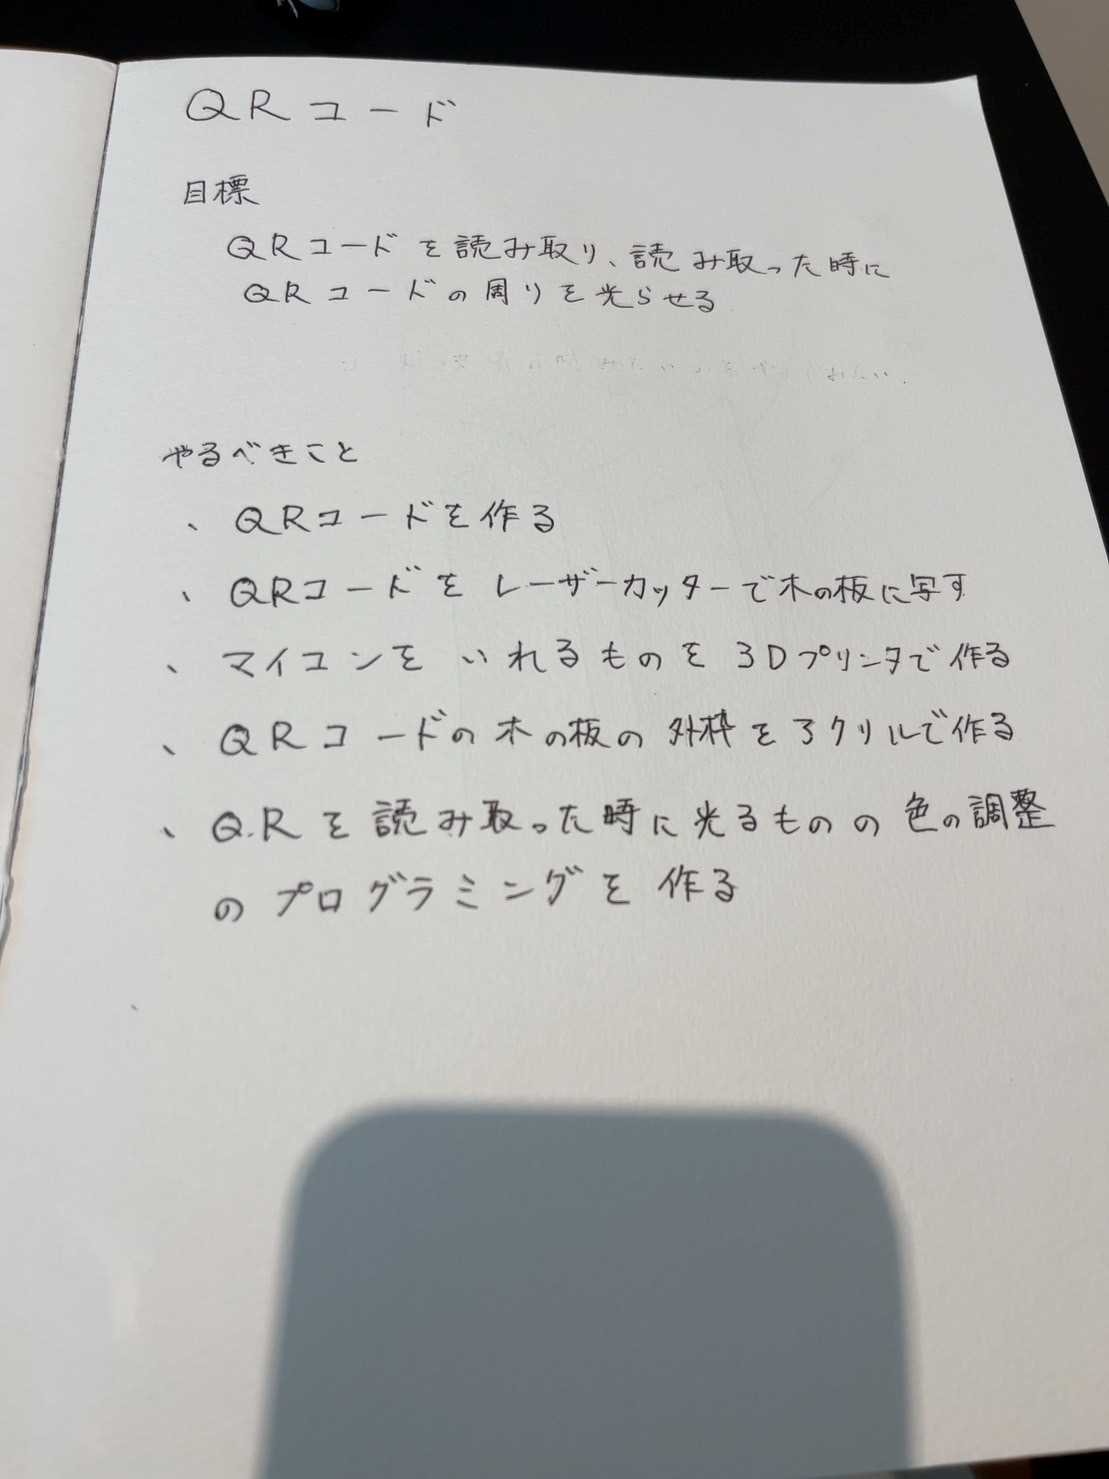 QRコード
目標
QRコードを読み取り、読み取った時に
QRコードの周りを光らせる
やるべきこと
、QRコードを作る
、QRコードをレーザーカッターで木の板に写す
、マイコンをいれるものを3Dプリンタで作る
、QRコードの木の板の外枠をアクリルで作る
、Q.Rを読み取った時に光るものの色の調整
のプログラミングを作る